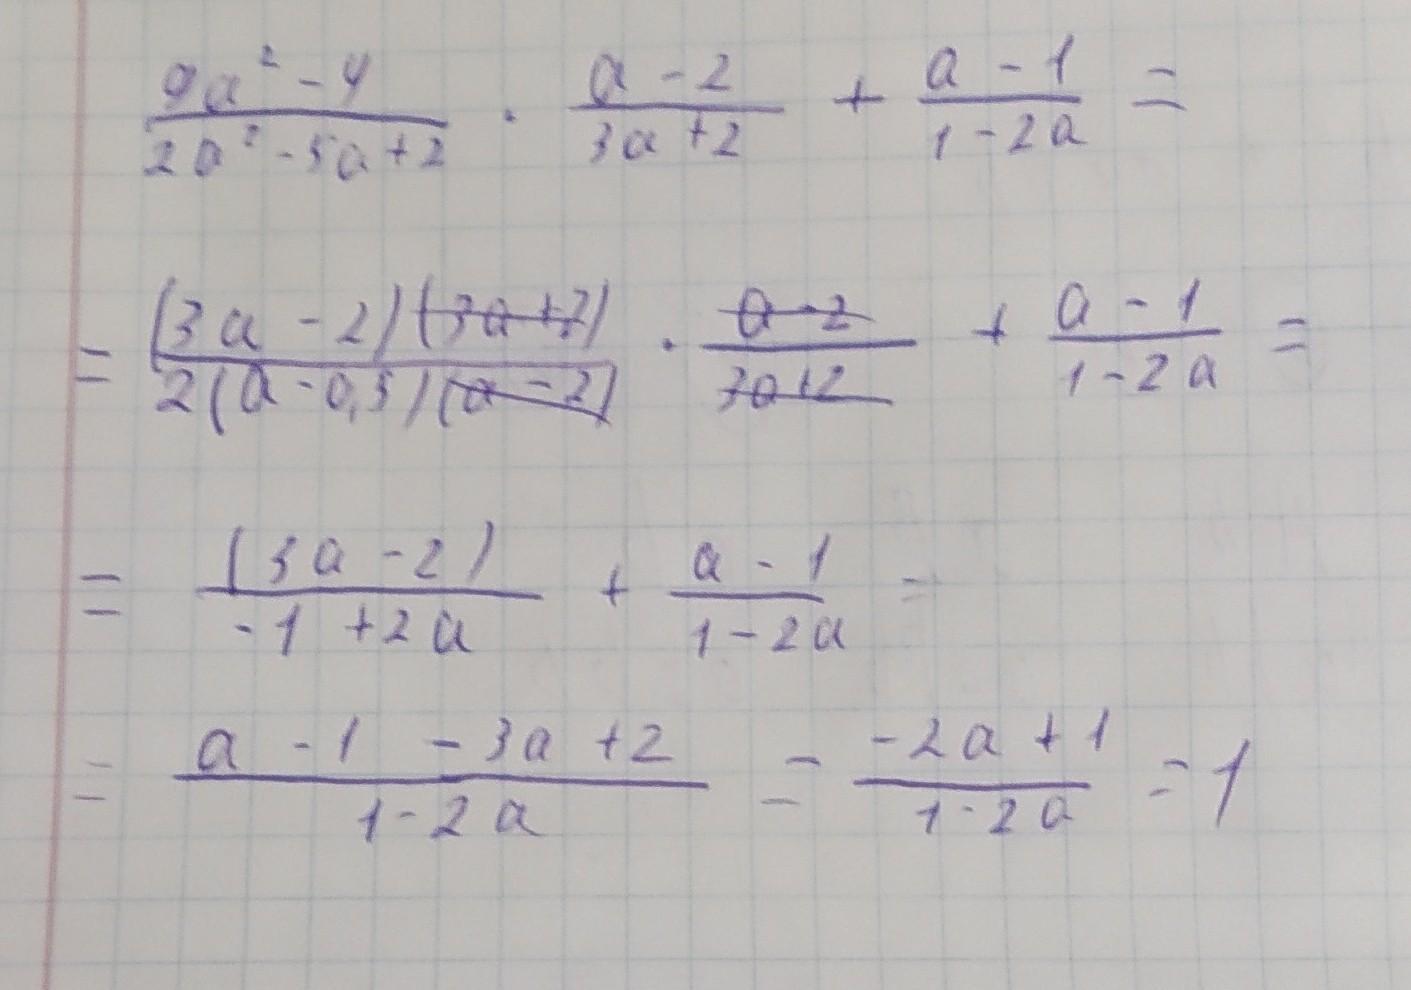 \frac{9a^2-4}{2a^2-5a+2} \cdot \frac{a-2}{3a+2} + \frac{a-1}{1-2a} =
= \frac{(3a-2)(3a+2)}{2(a-0,5)(a-2)} \cdot \frac{a-2}{3a+2} + \frac{a-1}{1-2a} =
= \frac{(3a-2)}{-1+2a} + \frac{a-1}{1-2a} =
= \frac{a-1-3a+2}{1-2a} = \frac{-2a+1}{1-2a} = 1